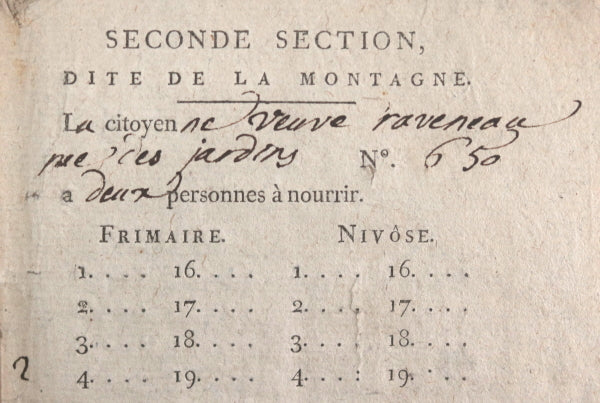 SECONDE SECTION,
DITE DE LA MONTAGNE.
La citoyenne veuve raveneau
rue des jardins N°. 650
a deux personnes à nourrir.
FRIMAIRE. NIVÔSE.
1. . . . 16. . . . 1. . . . 16. . . .
2. . . . 17. . . . 2. . . . 17. . . .
3. . . . 18. . . . 3. . . . 18. . . .
2 4. . . . 19. . . . 4. . . : 19. . . .